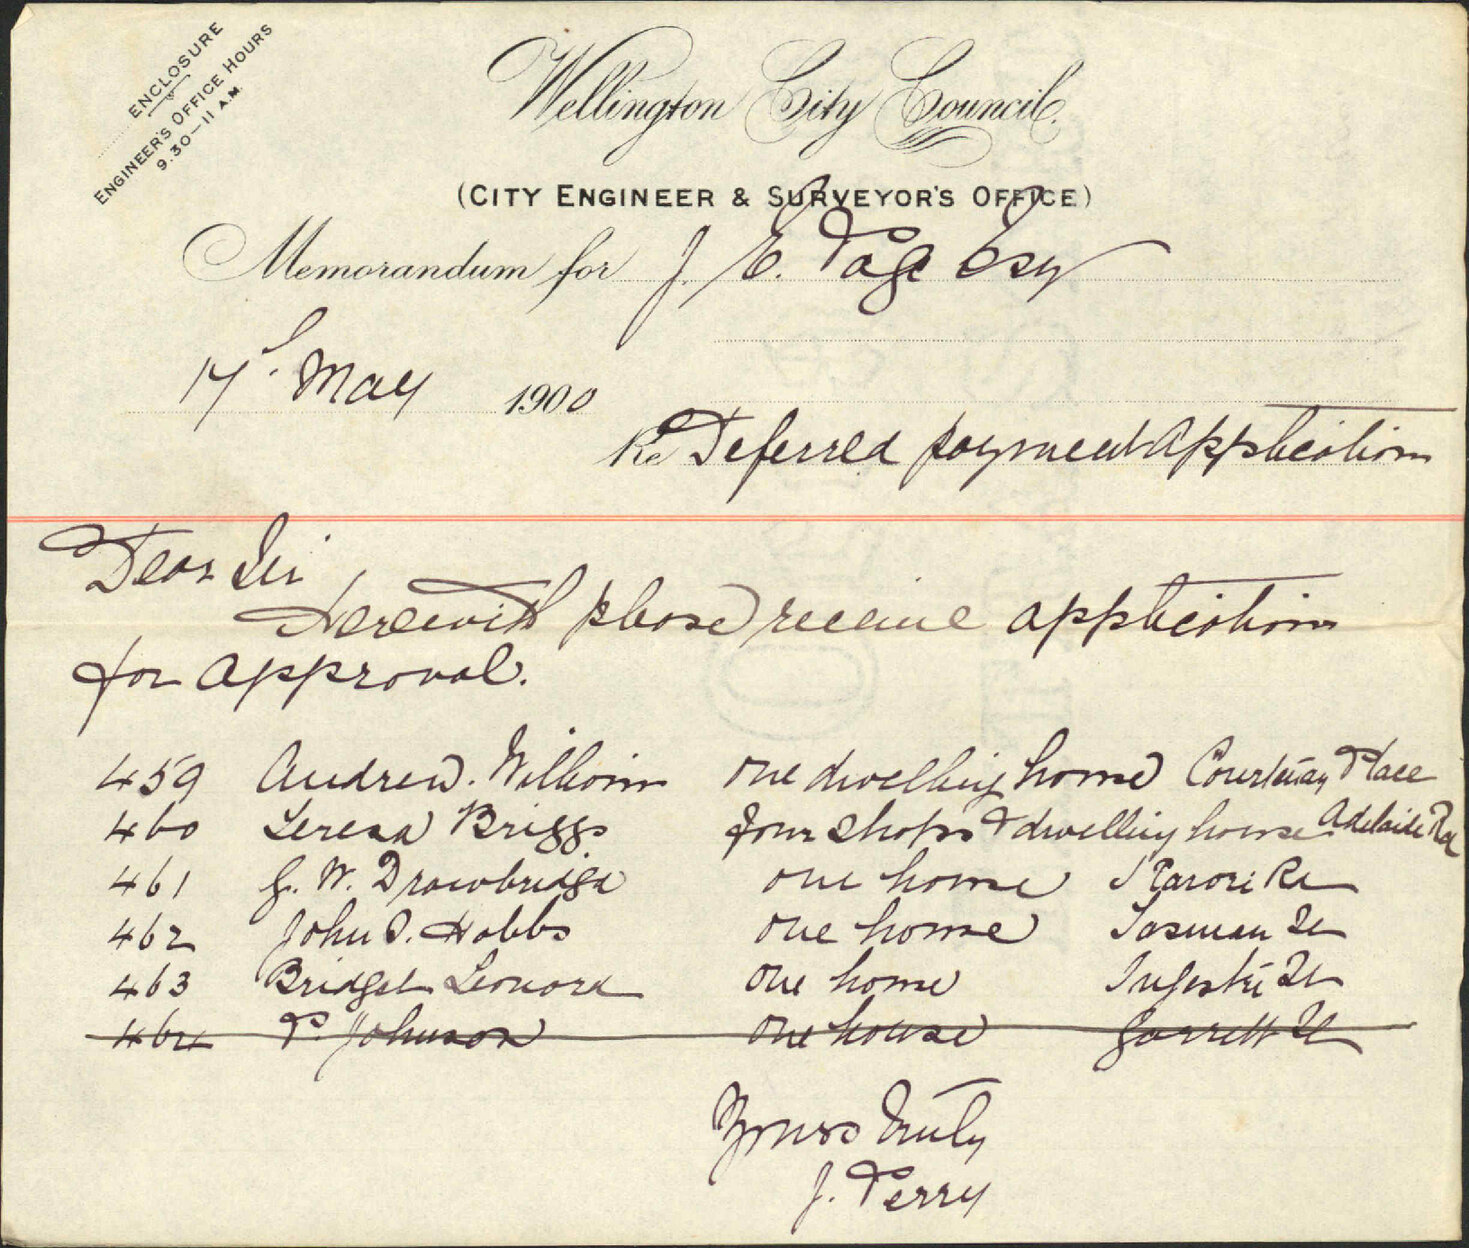 ENCLOSURE
ENGINEER'S OFFICE HOURS
9.30–11 A.M.
Wellington City Council.
(CITY ENGINEER & SURVEYOR'S OFFICE)
Memorandum for J. E. Page Esq
17 May 1900
Re Deferred payment application
Dear Sir
Herewith please receive application
for approval.
459 Andrew. William one dwelling house Courtenay Place
460 Teresa Briggs four shops & dwelling house Adelaide Rd
461 G. W. Drawbridge one house Karori Rd
462 John Hobbs one house Tasman St
463 Bridget Leonard one house Ingestre St
464 P. Johnson one house Garrett St
Yours truly
J. Perry